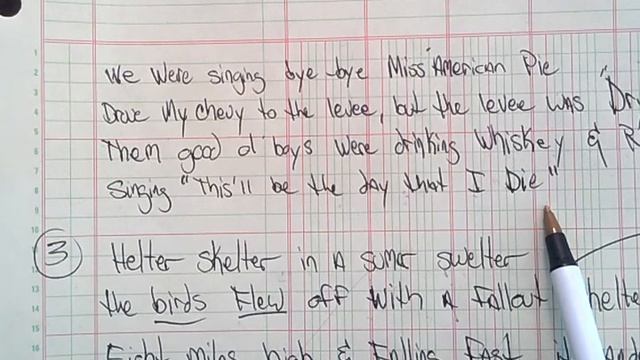 We Were singing bye-bye Miss American Pie
Drove My chevy to the levee, but the levee was "Dr
Them good ol boys Were drinking Whiskey & R
Singing "This'll be the day that I Die"
3 Helter skelter in A sumer swelter
the birds Flew off With A Fallout helte
Eight miles high & Falling Fast